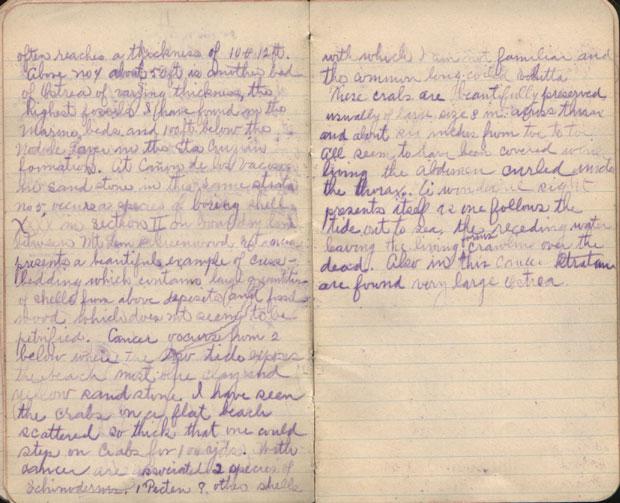 often reaches a thickness of 10 ft 12 ft.
Above no 4 about 50 ft is another bed
of Ostrea of varying thickness, the
highest fossils I have found in the
Marine beds and 100 ft below the
Nodule layer in the Sta Cruzian
formation. At Cañon de las Vacas
in sand stone in this same strata
no 5, occurs a species of boring shell
in section II on boundary line
between Mt. Leon &
presents a beautiful example of cross-
bedding which contains large quantities
of shells from above deposits and fossil
wood which does not seem to be
petrified. Cancer occurs from 2
below where the low tide exposes
the beach most clay and
yellow sand stone. I have seen
the crabs in a flat beach
scattered so thick that one could
step on crabs for 100 yds. With
cancer are associated 2 species of
Echinoderms. 1 Pecten ? other shells
with which I am not familiar and
the common long
These crabs are beautifully preserved
usually of large size 8 in. across thorax
and about six inches from toe to toe.
All seem to have been covered while
living the abdomen curled under
the thorax. A wonderful sight
presents itself as one follows the
tide out to sea, the receding water
leaving the living crawling over the
dead. Also in this cancer stratum
are found very large Ostrea.